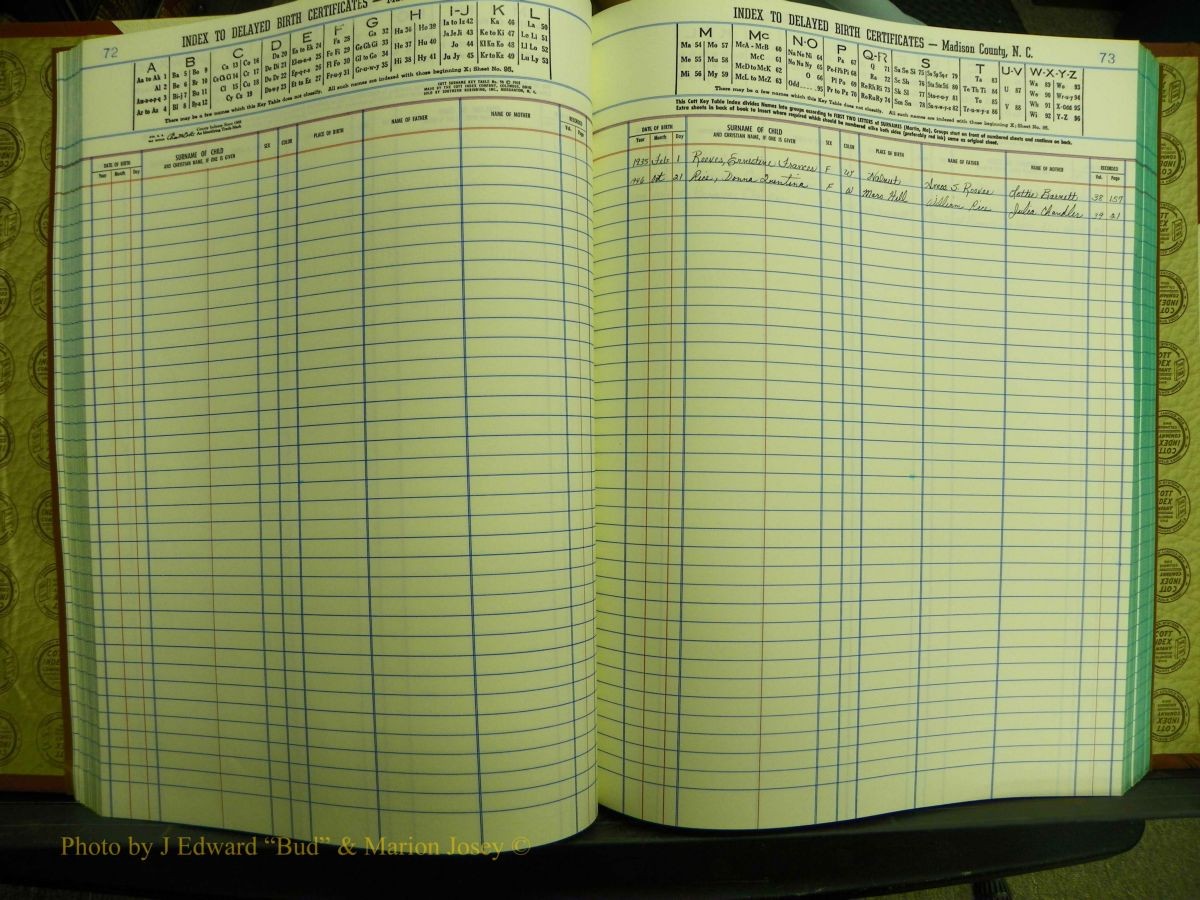 72
INDEX TO DELAYED BIRTH CERTIFICATES —
A B C D E F G H I-J K L
Aa to Ah 1 Ba 5 Bo 9 Ca 13 Co 16 Da 20 Ea to Ek 24 Fa 28 Ga 32 Ha 36 Ho 39 Ia to Iz 42 Ka 46 La 50
Al 2 Be 6 Br 10 Ce Ci 14 Cr 17 De 21 El-em-e-n 25 Fe Fi 29 Ge Gh Gi 33 He 37 Hu 40 Ja Je Ji 43 Ke to Ki 47 Le Li 51
Am-n-o-p-q 3 Bi-j-l 7 Bu 11 Cl 15 Cu 18 Di Do 22 Ep-q-r-s 26 Fl Fo 30 Gl to Go 34 Hi 38 Hy 41 Jo 44 Kl Kn Ko 48 Ll Lo 52
Ar to Az 4 Bl 8 By a 12 Cy Cz 19 Du-w-y 23 Et to Ez 27 Fr-u-y 31 Gr-u-w-y 35 Ju Jy 45 Kr to Kz 49 Lu Ly 53
There may be a few names which this Key Table does not classify. All such names are indexed with those beginning X; Sheet No. 95.
County Indexes Since 1888
An Identifying Trade Mark
COTT SURNAME KEY TABLE
MADE BY THE COTT INDEX COMPANY, COLUMBUS, OHIO
DATE OF BIRTH SURNAME OF CHILD SEX COLOR PLACE OF BIRTH NAME OF FATHER NAME OF MOTHER RECORDED
Year Month Day AND CHRISTIAN NAME, IF ONE IS GIVEN Vol. Page
INDEX TO DELAYED BIRTH CERTIFICATES — Madison County, N. C.
73
M Mc N-O P Q-R S T U-V W-X-Y-Z
Ma 54 Mo 57 McA - McB 60 Na Ne Ni 64 Pa 67 Q 71 Sa Se Si 75 Sp Sq Sr 79 Ta 83 Wa 89 Wo 93
Me 55 Mu 58 McC 61 No Nu Ny 65 Pe-Pf-Ph Pi 68 Ra 72 Sc Sk 76 Sta Ste Sti 80 Te Th Ti 84 U 87 We 90 Wr-u-y 94
Mi 56 My 59 McD to McK 62 O 66 Pl Po 69 Re Rh Ri 73 Sh Sl 77 Sto-r-u-y 81 To 85 V 88 Wh 91 X-Odd 95
McL to McZ 63 Odd.....95 Pr to Pz 70 Ro Ru Ry 74 Sm Sn 78 Su-v-w-y-z 82 Tr-u-w-y-z 86 Wi 92 Y-Z 96
There may be a few names which this Key Table does not classify. All such names are indexed with those beginning X; Sheet No. 95.
This Cott Key Table Index divides Names into groups according to FIRST TWO LETTERS of SURNAMES (Martin, Mo). Groups start on front of numbered sheets and continue on back.
Extra sheets in back of book to insert where required which should be numbered alike both sides (preferably red ink) same as original sheet.
DATE OF BIRTH SURNAME OF CHILD SEX COLOR PLACE OF BIRTH NAME OF FATHER NAME OF MOTHER RECORDED
Year Month Day AND CHRISTIAN NAME, IF ONE IS GIVEN Vol. Page
1935 Feb 1 Reeves, Ernestine Frances F W Walnut Amos S. Reeves Lottie Barnett 38 157
1946 Oct 21 Rice, Donna Quintina F W Mars Hill William Rice Julia Chandler 39 21
Photo by J Edward “Bud” & Marion Josey ©